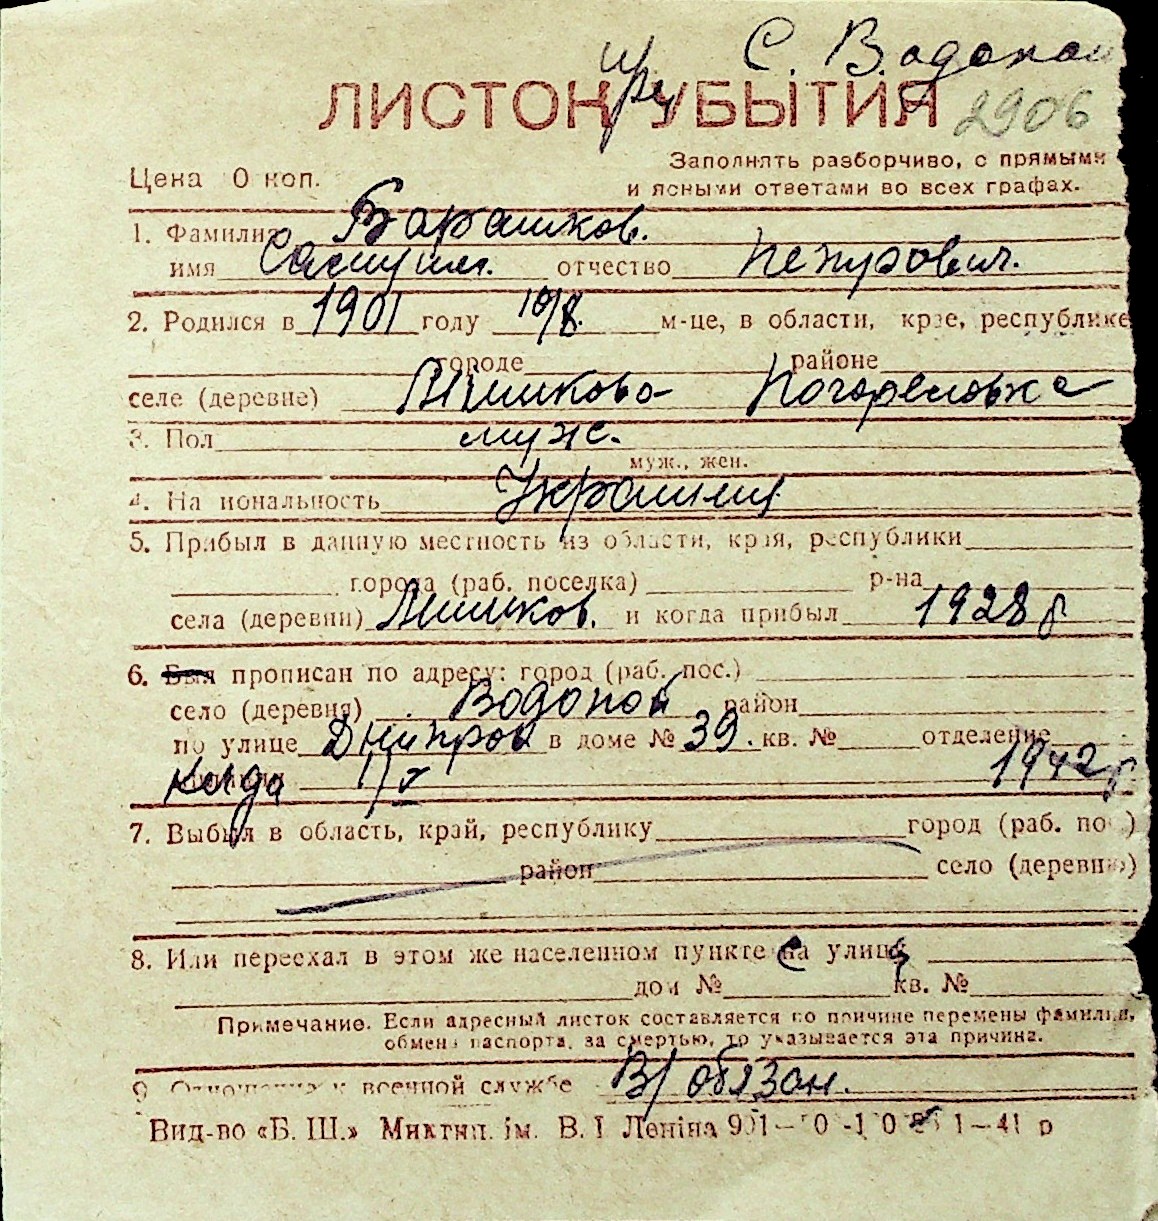 С. Водопой
ЛИСТОК УБЫТИЯ 2906
Заполнять разборчиво, с прямыми
Цена 0 коп.
и ясными ответами во всех графах.
1. Фамилия Барашков.
имя отчество Петрович.
2. Родился в 1901 году 10/8. м-це, в области, крае, республике
городе районе
селе (деревне) Погореловка
3. Пол муж.
муж., жен.
4. Национальность Украинец
5. Прибыл в данную местность из области, края, республики
города (раб. поселка) р-на
села (деревни) и когда прибыл 1928 г
6. Был прописан по адресу: город (раб. пос.)
село (деревня) Водопой район
по улице Дніпров в доме № 39. кв. № отделение
Когда 1/V 1942 г
7. Выбыл в область, край, республику город (раб. пос.)
район село (деревню)
8. Или переехал в этом же населенном пункте с улицы
дом № кв. №
Примечание. Если адресный листок составляется по причине перемены фамилии,
обмена паспорта, за смертью, то указывается эта причина.
9. Отношение к военной службе В/обязан.
Вид-во «Б. Ш.» Миктип. ім. В. І Леніна